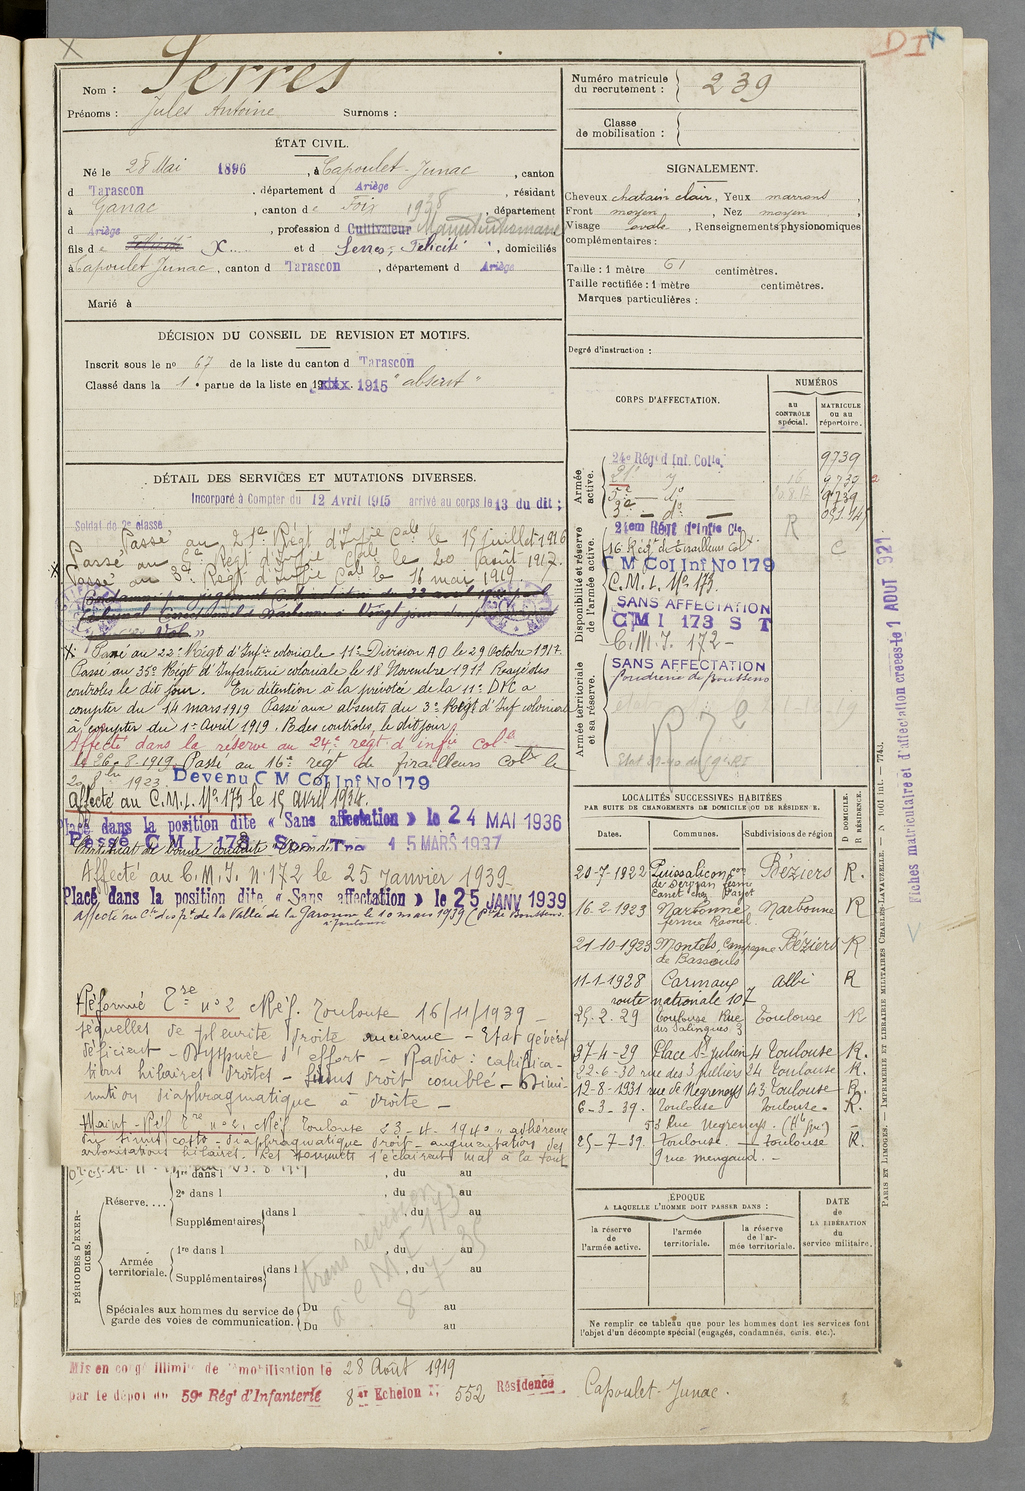 DI
Nom : Serres
Prénoms : Jules Antoine Surnoms :
ÉTAT CIVIL.
Né le 28 Mai 1896, à Capoulet-Junac, canton
d Tarascon, département d Ariège, résidant
à Ganac, canton de Foix 1938, département
d Ariège, profession d Cultivateur
fils de Félicité X et d Serres, Félicité, domiciliés
à Capoulet Junac, canton d Tarascon, département d Ariège
Marié à
DÉCISION DU CONSEIL DE REVISION ET MOTIFS.
Inscrit sous le no 67 de la liste du canton d Tarascon
Classé dans la 1e partie de la liste en 1915 "absent"
DÉTAIL DES SERVICES ET MUTATIONS DIVERSES.
Incorporé à Compter du 12 Avril 1915 arrivé au corps le 13 du dit ;
Soldat de 2e classe
Passé au 21e Régt d'Ifie Cale le 15 juillet 1916
Passé au 5e Régt d'Infie Cale le 20 Août 1917.
Passé au 3e Régt d'Infie Cale le 11 mai 1919
X Passé au 22e Régt d'Infie coloniale 11e Division A O le 29 Octobre 1917.
Passé au 35e Régt d'Infanterie coloniale le 18 Novembre 1917 Rayé des
contrôles le dit jour. En détention à la prévôté de la 11e DIC a
compter du 14 mars 1919 Passé aux absents du 3e Régt d'Inf coloniale
à compter du 1er Avril 1919. R des contrôles, le dit jour
Affecté dans la réserve au 24e régt d'infie Cole
le 26-8-1919. Passé au 16e régt de tirailleurs Colx le
1923 Devenu C M Col Inf No 179
Affecté au C.M.I. No 173 le 15 avril 1934.
Placé dans la position dite « Sans affectation » le 24 MAI 1936
Passé C M I 173 15 MARS 1937
Certificat de bonne conduite
Affecté au C.M.I. No 172 le 25 Janvier 1939
Placé dans la position dite « Sans affectation » le 25 JANV 1939
Affecté au de la Vallée de la Garonne le 10 mars 1939
à Toulouse
Réformé Tre no 2 Réf. Toulouse 16/11/1939 -
séquelles de pleurite droite ancienne - Etat général
déficient - Dyspnée d'effort - Radio : calcifica-
tions hilaires droites - Sinus droit comblé - Dimi-
nution diaphragmatique à droite -
Maint. Réf Tre no 2. Réf Toulouse 23-4-1940 " adhérence
du sinus costo-diaphragmatique droit - augmentation des
arborisations hilaires. Les sommets s'éclairent mal à la toux
PÉRIODES D'EXERCICES.
Réserve.... 1re dans l , du au
2e dans l , du au
Supplémentaires dans l , du au
Armée territoriale. 1re dans l , du au
Supplémentaires dans l , du au
trans révision
à CMI 173
8-7-35
Spéciales aux hommes du service de garde des voies de communication. Du au
Du au
Mis en congé illimité de démobilisation le 28 Août 1919
par le dépôt du 59e Régt d'Infanterie 8e Echelon No 552 Résidence Capoulet-Junac.
Numéro matricule du recrutement : 239
Classe de mobilisation :
SIGNALEMENT.
Cheveux chatain clair, Yeux marrons,
Front moyen, Nez moyen,
Visage ovale, Renseignements physionomiques
complémentaires :
Taille : 1 mètre 61 centimètres.
Taille rectifiée : 1 mètre centimètres.
Marques particulières :
Degré d'instruction :
CORPS D'AFFECTATION.
NUMÉROS
au CONTRÔLE spécial.
MATRICULE ou au répertoire.
Armée active.
24e Régt d Inf. Colle 9739
21e do 16 9739
5e - do 9739
3e - do
Disponibilité et réserve de l'armée active.
21em Régt d'Infie Cle R
16 Régt de Tirailleurs Colx. C
C M Col Inf No 179
C.M.I. No 173.
SANS AFFECTATION
CMI 173 S T
C.M.I. 172 -
Armée territoriale et sa réserve.
SANS AFFECTATION
poudrerie de Boussens
LOCALITÉS SUCCESSIVES HABITÉES
PAR SUITE DE CHANGEMENTS DE DOMICILE OU DE RÉSIDENCE.
Dates. Communes. Subdivisions de région D DOMICILE. R RÉSIDENCE.
20-7-1922 Puissalicon Béziers R.
16-2-1923 Narbonne Narbonne R
21-10-1923 Montels, Campagne Béziers R
de Bassouls
11-1-1928 Carmaux Albi R
route nationale 107
25.2.29 Toulouse Rue Toulouse R
des Salinques 3
27-4-29 Place St Julien 4 Toulouse R.
22-6-30 rue des 3 Piliers 24 Toulouse R.
12-8-1931 rue de Negreneys 43 Toulouse R.
6-3-39. Toulouse Toulouse. R.
53 Rue Negreneys.
25-7-39 Toulouse. - Toulouse R.
9 rue mengaud. -
ÉPOQUE
A LAQUELLE L'HOMME DOIT PASSER DANS :
la réserve de l'armée active. l'armée territoriale. la réserve de l'armée territoriale.
DATE de LA LIBÉRATION du service militaire.
Ne remplir ce tableau que pour les hommes dont les services font
l'objet d'un décompte spécial (engagés, condamnés, omis, etc.).
PARIS ET LIMOGES. — IMPRIMERIE ET LIBRAIRIE MILITAIRES CHARLES-LAVAUZELLE. — N° 1001 int. — 774.
Fiches matriculaire et d'affectation créées le 1 AOUT 921